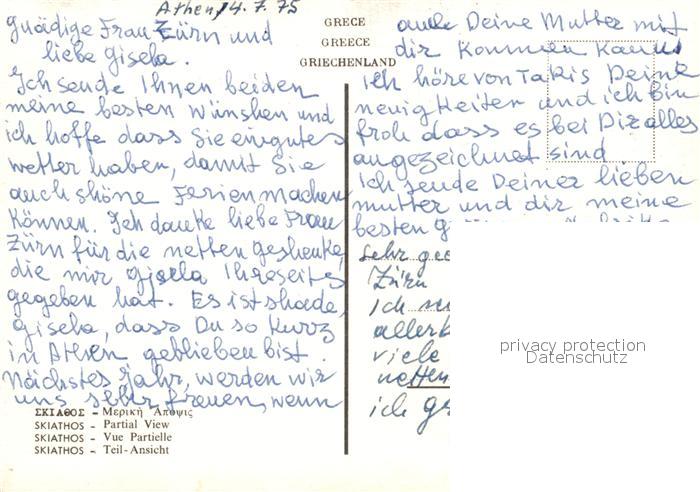 Athen, 4.7.75
gnädige Frau Zürn und
liebe Gisela.
Ich sende Ihnen beiden
meine besten Wünshen und
ich hoffe dass Sie ein gutes
wetter haben, damit Sie
auch shöne Ferien machen
können. Ich danke liebe Frau
Zürn für die netten geshenke,
die mir Gisela Ihreseits
gegeben hat. Es ist shade,
gisela, dass Du so kurz
in Athen geblieben bist.
Nächstes Jahr, werden wir
uns sehr freuen, wenn
ΣΚΙΑΘΟΣ – Μερικὴ Ἄποψις
SKIATHOS – Partial View
SKIATHOS – Vue Partielle
SKIATHOS – Teil-Ansicht
GRECE
GREECE
GRIECHENLAND
auch Deine Mutter mit
dir kommen kann
ich höre von Takis Deine
neuigkeiten und ich bin
froh dass es bei Dir alles
angezeichnet sind
ich sende Deiner lieben
mutter und dir meine
besten
sehr
Zürn
ich
viele
netten
ich
privacy protection
Datenschutz